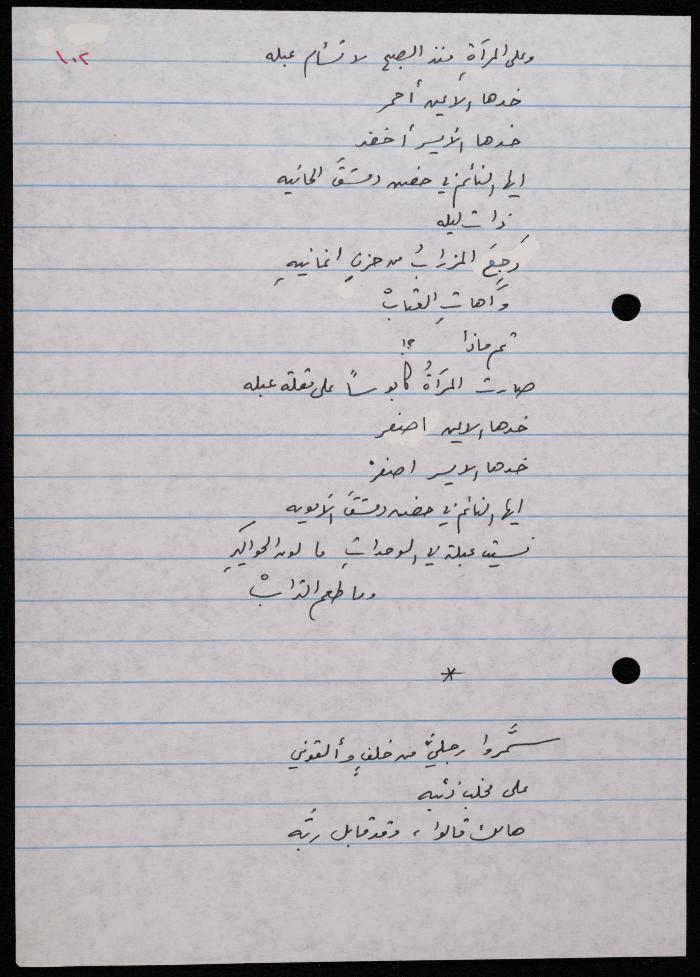 ١٠٢
وعلى المرآةِ منذ الصبح لا تسأم عبله
خدها الأيمن أحمر
خدها الأيسر أخضر
ايها النائم في حضن دمشقَ الحانيه
ذات ليله
رَجِعَ المزرابُ من حزنِ اغانيهِ
وآهاتِ القبابْ
ثم ماذا ؟!
صارت المرآةُ كابوساً على مقلة عبله
خدها الايمن اصفر
خدها الايسر اصفرْ
ايها النائم في حضن دمشقَ الأمويه
نسيت عبلة في الوحداتِ ما لون الجواكيرِ
وما طعم الترابْ
*
سمَّروا رجليَّ من خلفٍ وألقوني
على مخلب ذئبه
هالك قالوا، وقد قابل ربَّه